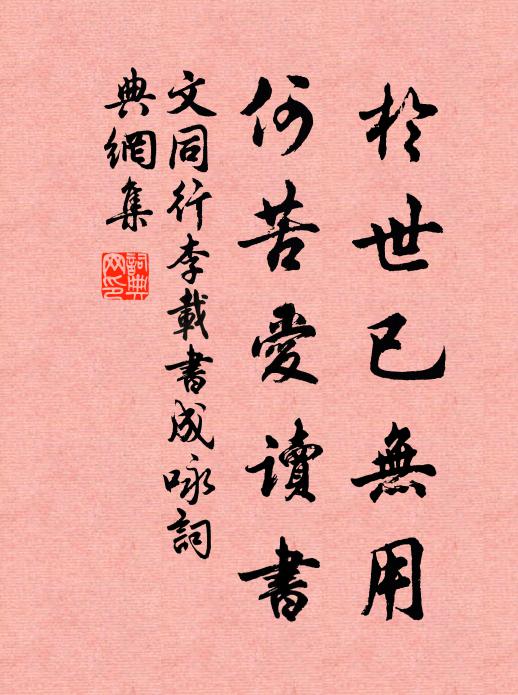 於世已無用
何苦愛讀書
文同行李載書成咏詞
典網集
詞典網印